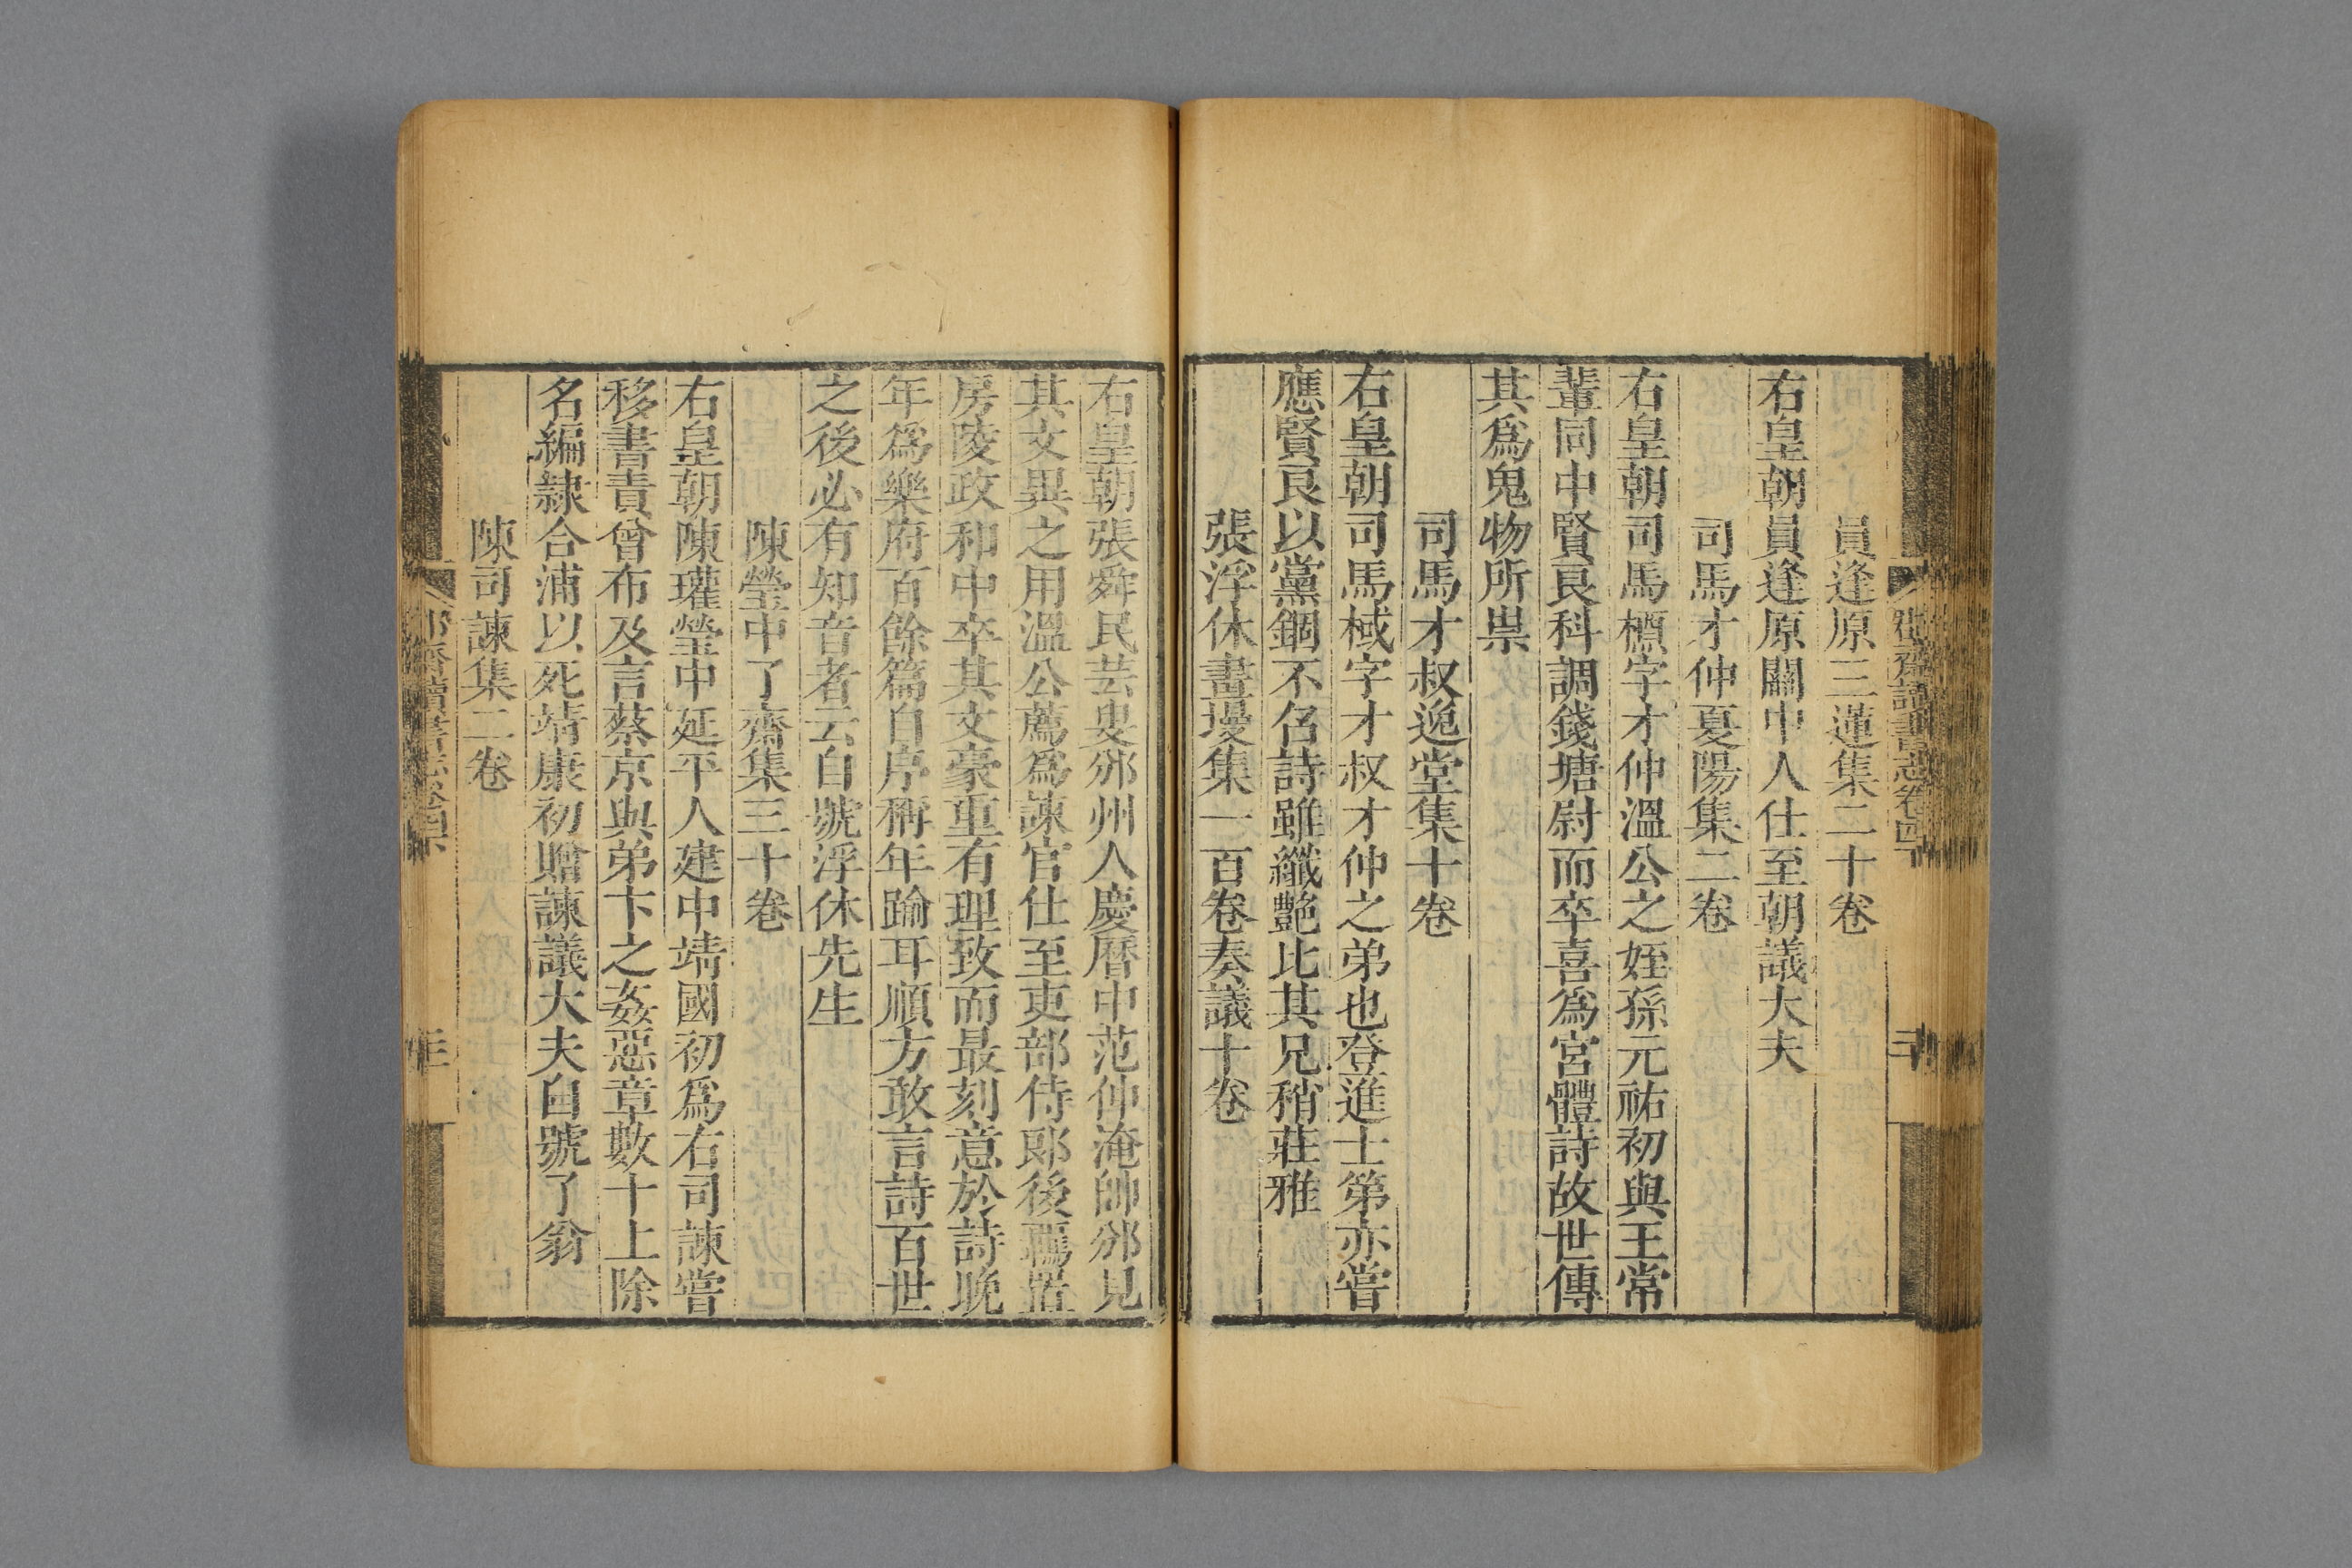 員逢原三蓮集二十卷
右皇朝員逢原關中人仕至朝議大夫
司馬才仲夏陽集二卷
右皇朝司馬槱字才仲溫公之姪孫元祐初與王常
輩同中賢良科調錢塘尉而卒喜爲宮體詩故世傳
其爲鬼物所祟
司馬才叔逸堂集十卷
右皇朝司馬棫字才叔才仲之弟也登進士第亦嘗
應賢良以黨錮不召詩雖纖艷比其兄稍莊雅
張浮休畫墁集一百卷奏議十卷
右皇朝張舜民芸叟邠州人慶曆中范仲淹帥邠見
其文異之用溫公薦爲諫官仕至吏部侍郎後羈置
房陵政和中卒其文豪重有理致而最刻意於詩晚
年爲樂府百餘篇自序稱年踰耳順方敢言詩百世
之後必有知音者云自號浮休先生
陳瑩中了齋集三十卷
右皇朝陳瓘瑩中延平人建中靖國初爲右司諫嘗
移書責曾布及言蔡京與弟卞之姦惡章數十上除
名編隸合浦以死靖康初贈諫議大夫自號了翁
陳司諫集二卷